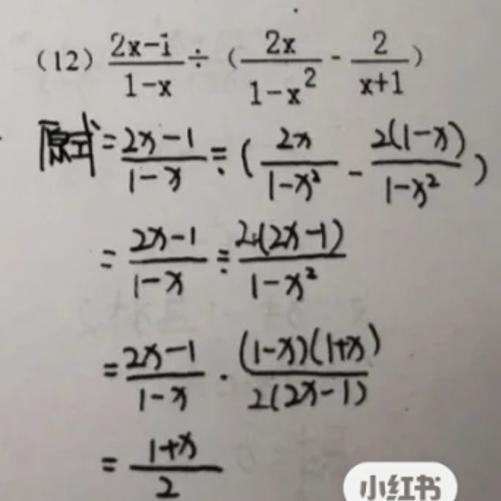 (12) \frac{2x-1}{1-x} ÷ ( \frac{2x}{1-x^2} - \frac{2}{x+1} )
原式 = \frac{2x-1}{1-x} ÷ ( \frac{2x}{1-x^2} - \frac{2(1-x)}{1-x^2} )
= \frac{2x-1}{1-x} ÷ \frac{2(2x-1)}{1-x^2}
= \frac{2x-1}{1-x} · \frac{(1-x)(1+x)}{2(2x-1)}
= \frac{1+x}{2}
小红书